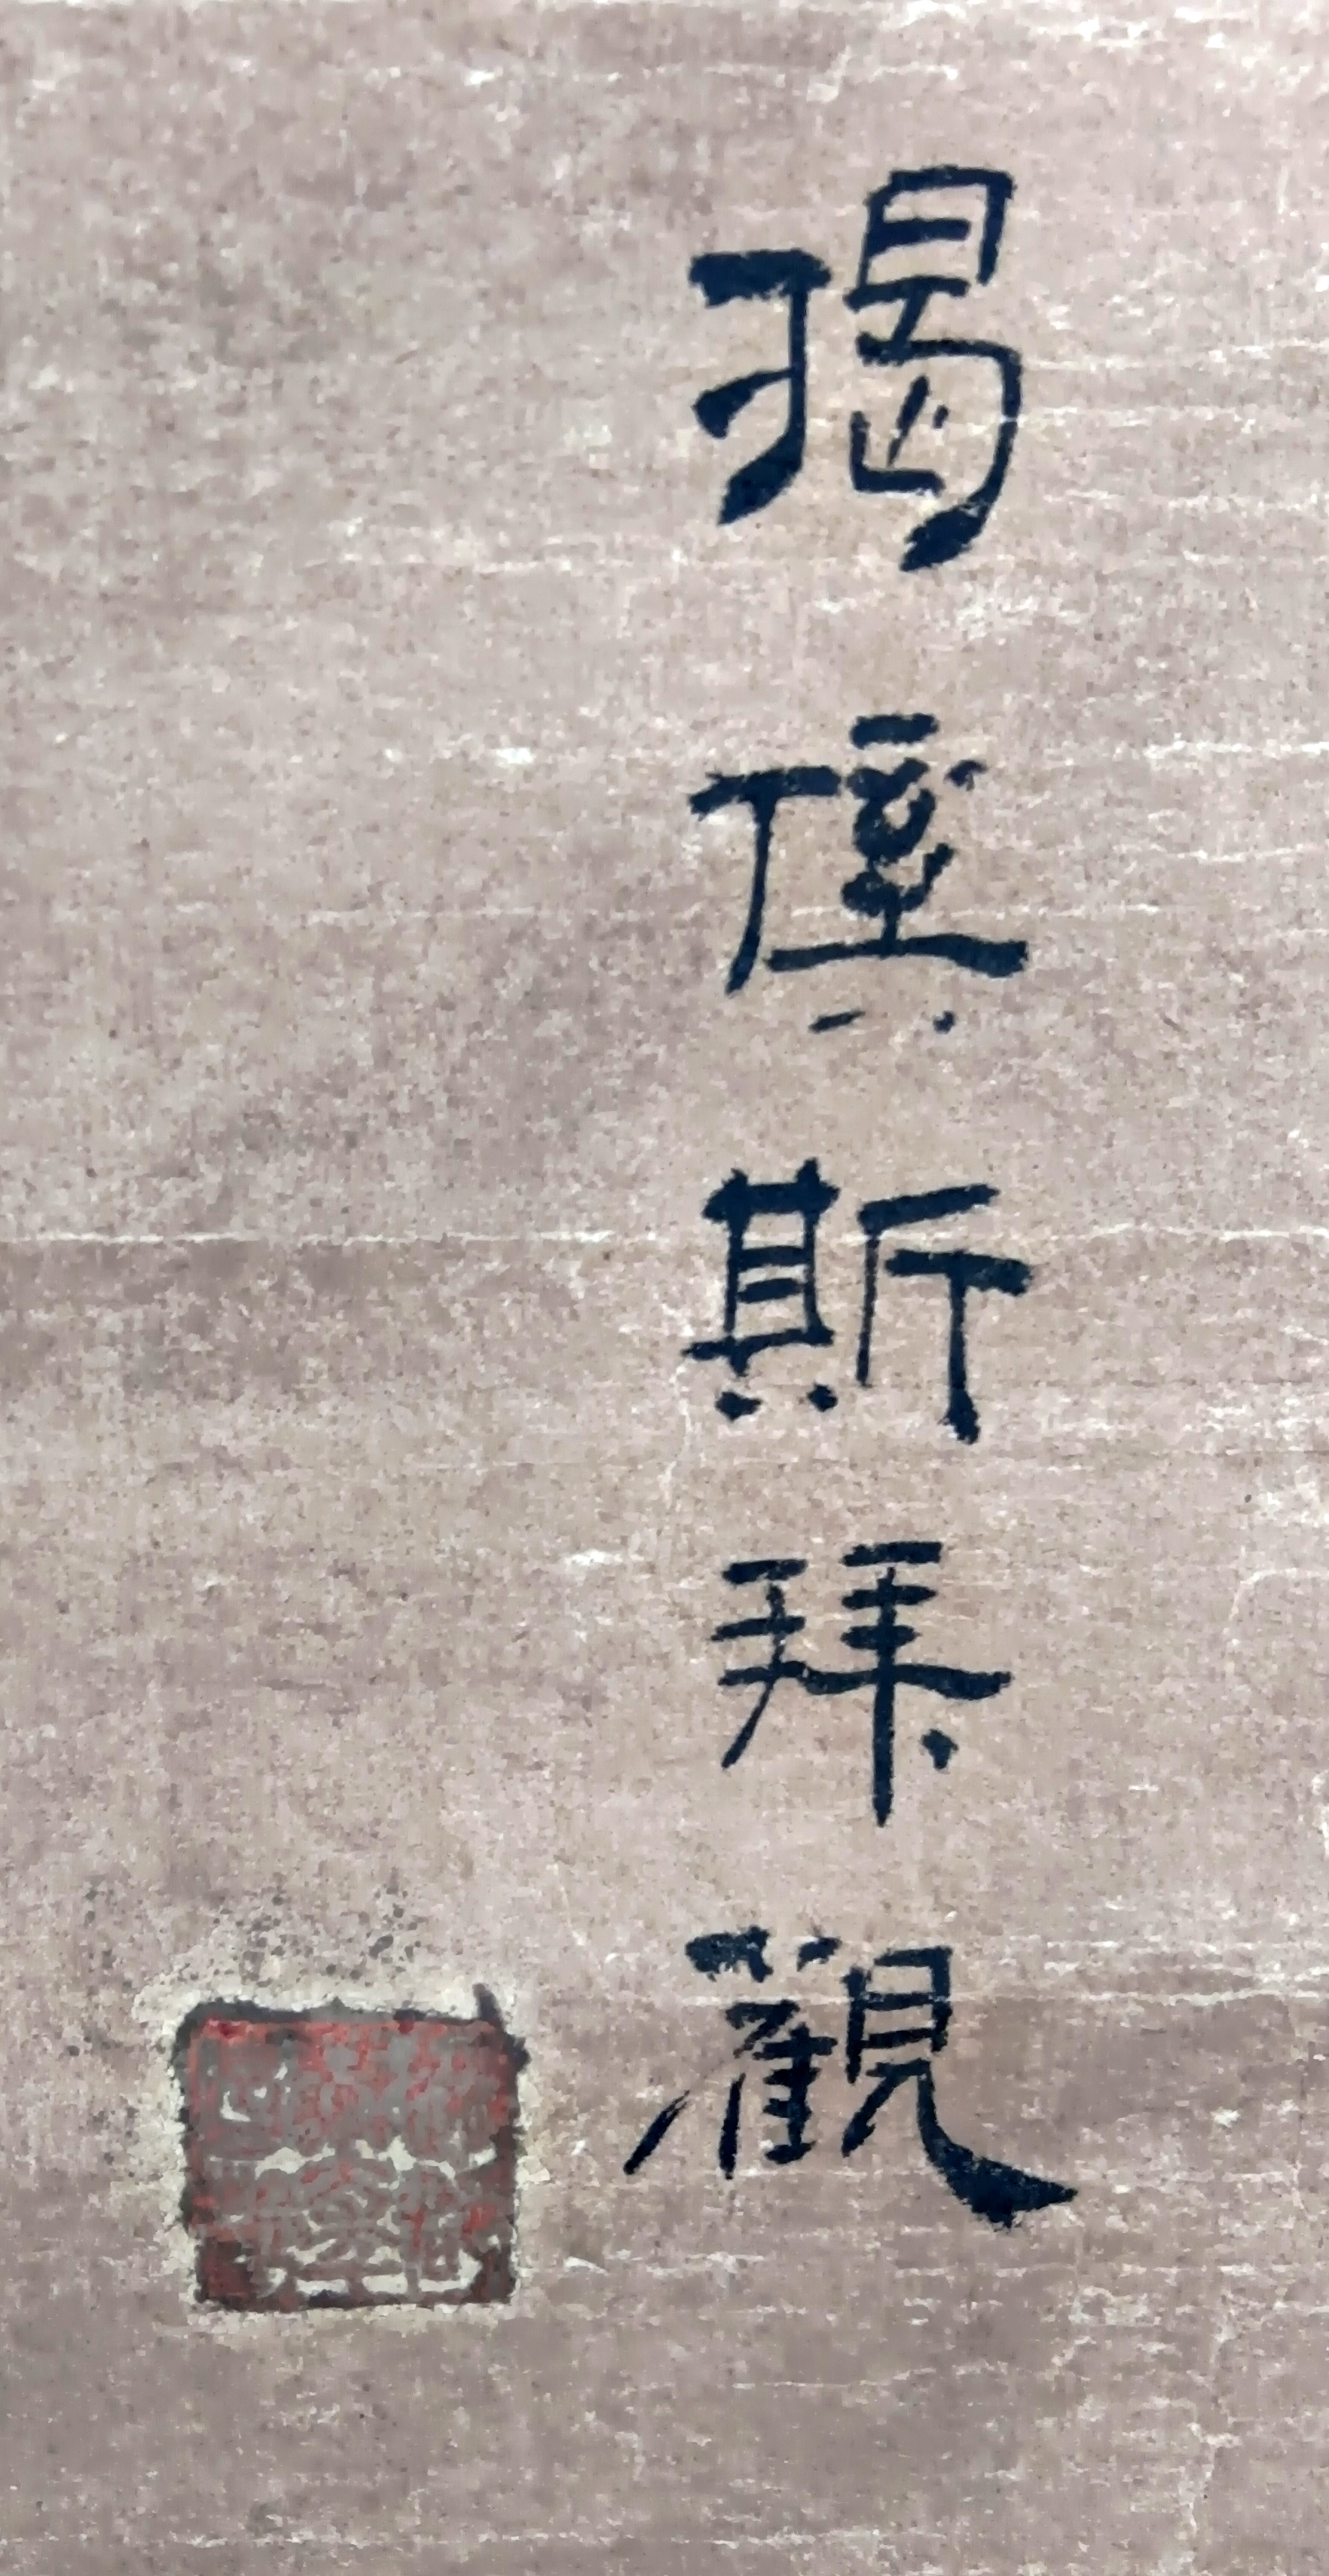 揭傒斯拜觀